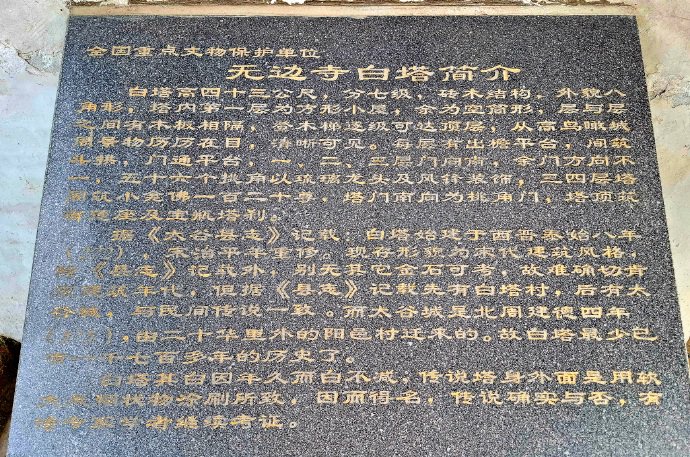 全国重点文物保护单位
无边寺白塔简介
白塔高四十三公尺，分七级，砖木结构，外貌八
角形，塔内第一层为方形小屋，余为空筒形，层与层
之间有木板相隔，登木梯逐级可达顶层，从高鸟瞰城
周景物历历在目，清晰可见。每层有出檐平台，间筑
斗拱，门通平台，一、二、三层门向南，余门方向不
一，五十六个挑角以琉璃龙头及风铃装饰，三四层塔
筑小壳佛一百二十尊，塔门南向为挑角门，塔顶筑
莲座及宝瓶塔刹。
据《太谷县志》记载：白塔始建于西晋泰始八年
，宋治平年重修。现存形貌为宋代建筑风格，
除《县志》记载外，别无其它金石可考，故难确切肯
定建筑年代，但据《县志》记载先有白塔村，后有太
谷城，与民间传说一致。而太谷城是北周建德四年
，由二十华里外的阳邑村迁来的。故白塔最少已
有一千七百多年的历史了。
白塔其白因年久而白不减，传说塔身外面是用软
状物涂刷所致，因而得名，传说确实与否，有
待专家学者继续考证。